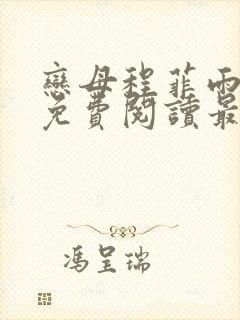 戀母程菲雨
免費閱讀最
馮呈瑞